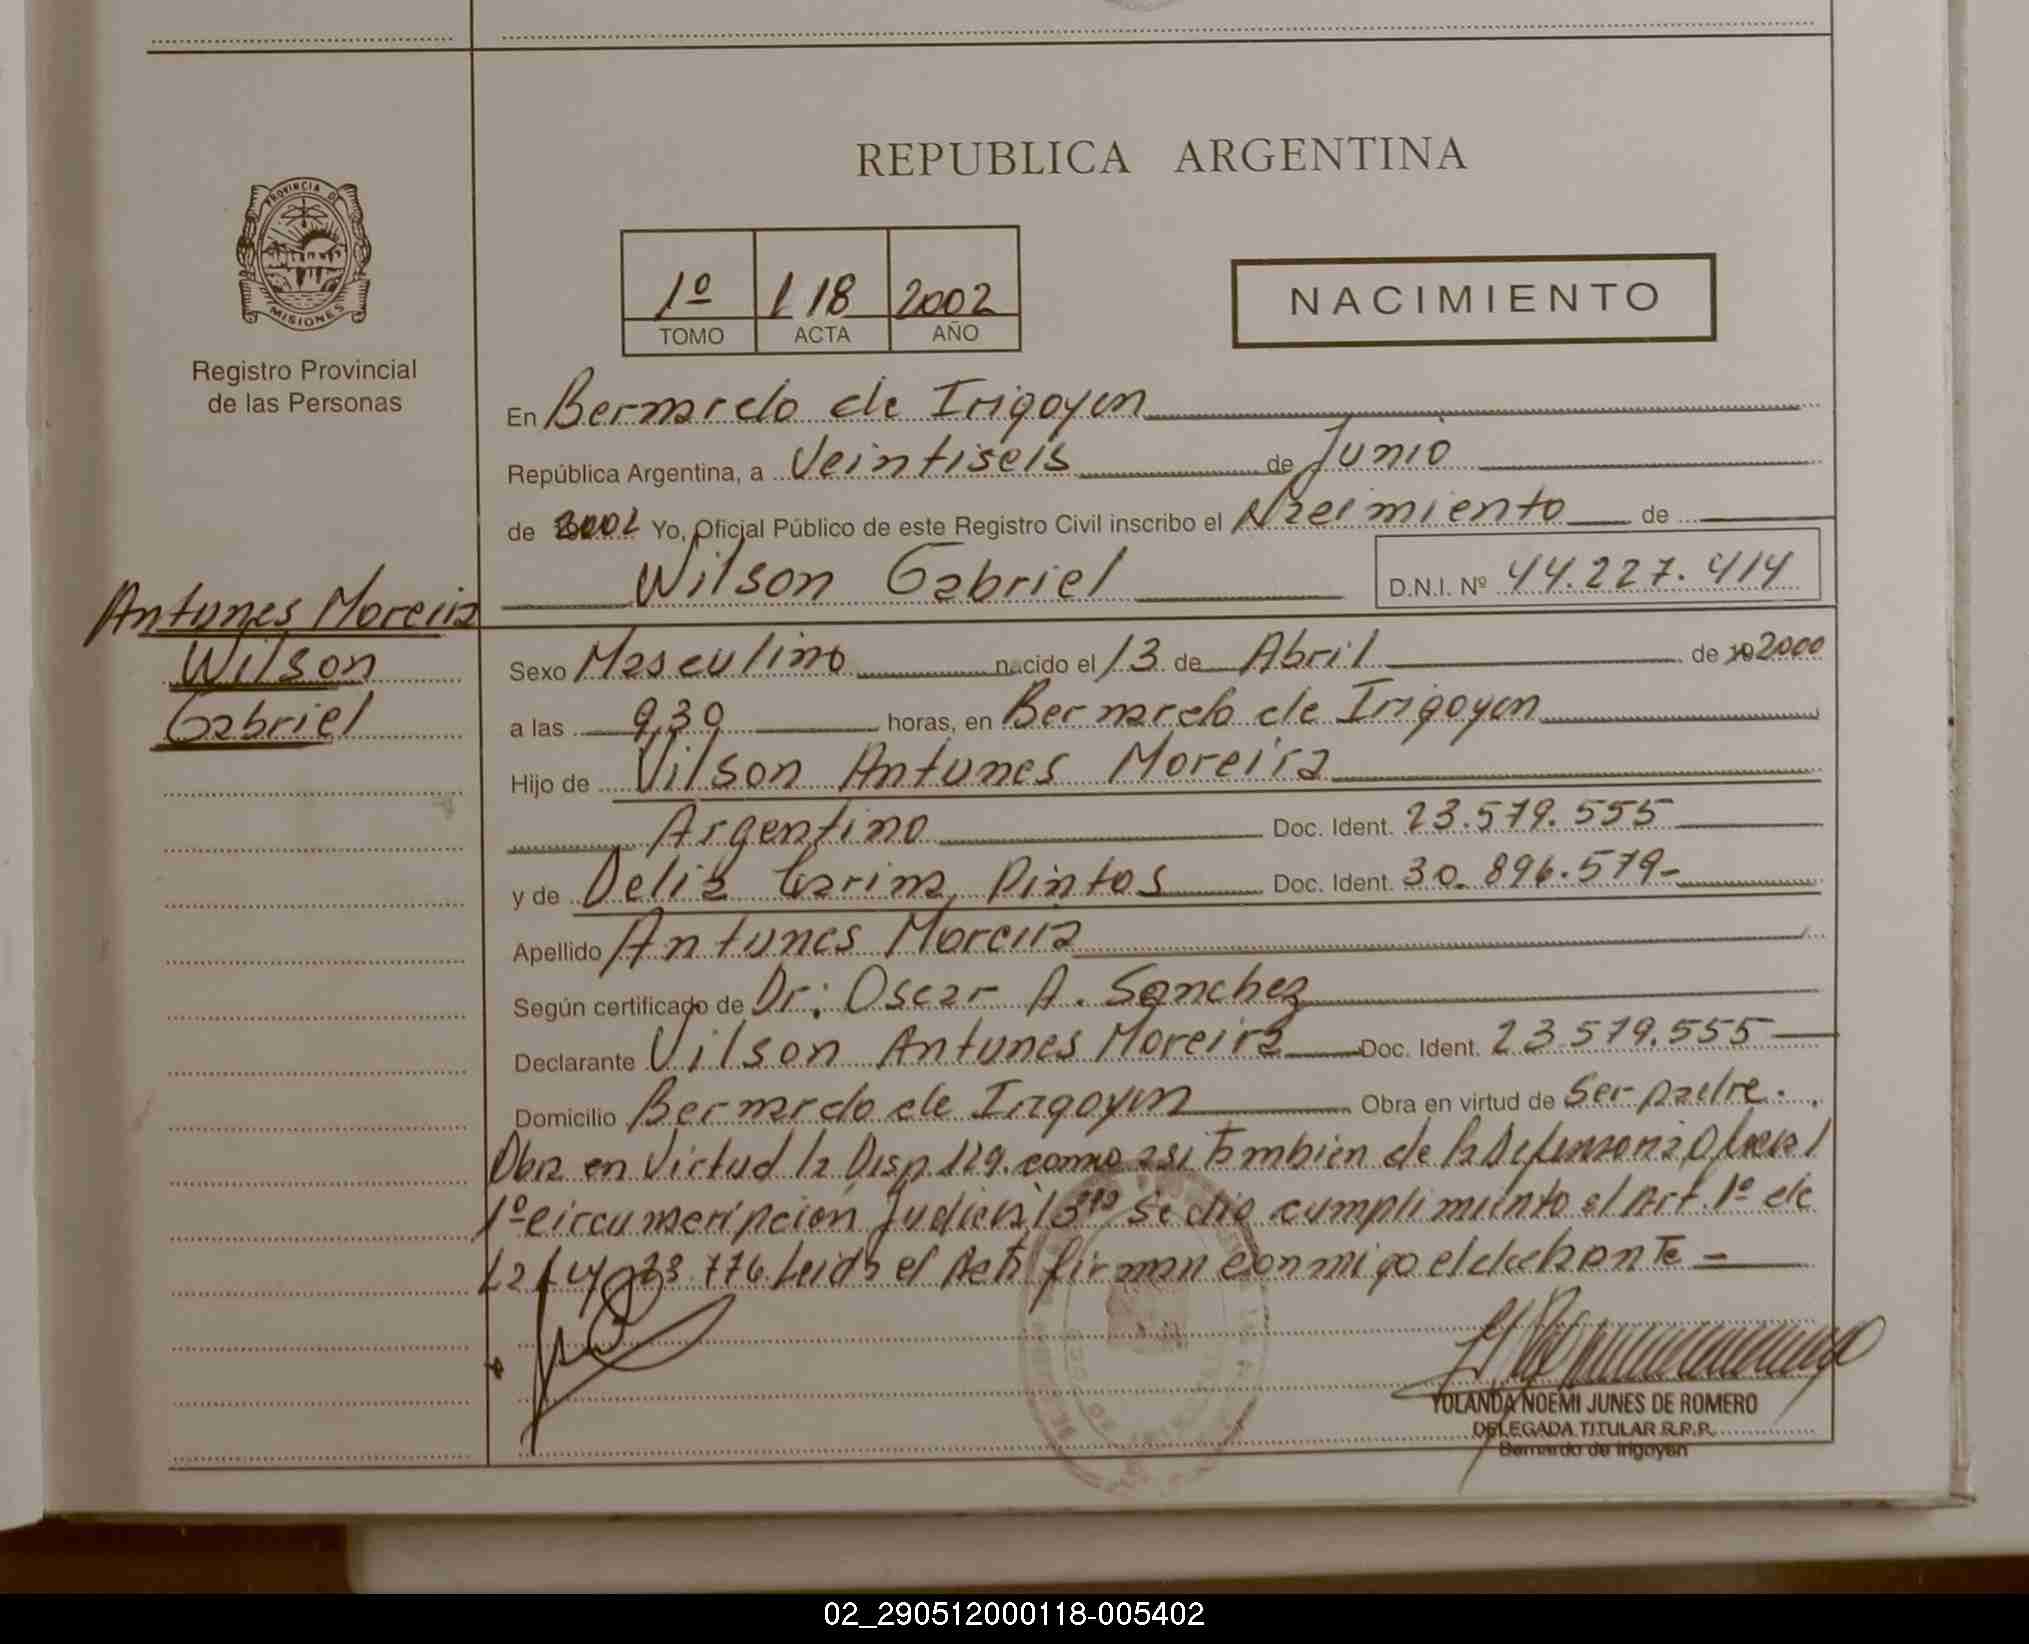 REPUBLICA ARGENTINA
PROVINCIA DE
MISIONES
Registro Provincial
de las Personas
1º 118 2002
TOMO ACTA AÑO
NACIMIENTO
En Bernardo de Irigoyen
República Argentina, a Veintiseis de Junio
de 2002 Yo, Oficial Público de este Registro Civil inscribo el Nacimiento de
Wilson Gabriel D.N.I. Nº 44.227.414
Antunes Moreira
Wilson
Gabriel
Sexo Masculino nacido el 13 de Abril de 192000
a las 9,30 horas, en Bernardo de Irigoyen
Hijo de Vilson Antunes Moreira
Argentino Doc. Ident. 23.579.555
y de Delia Carina Pintos Doc. Ident. 30.896.579-
Apellido Antunes Moreira
Según certificado de Dr: Oscar A. Sanchez
Declarante Vilson Antunes Moreira Doc. Ident. 23.579.555
Domicilio Bernardo de Irigoyen Obra en virtud de Ser padre.
Obra en Virtud la Disp 119. como asi Tambien de la Defensoria Oficial
1º circunscripción Judicial se dio cumplimiento el Art. 1º de
La Ley 23.776. Leida el Acta firman conmigo el declarante =
YOLANDA NOEMI JUNES DE ROMERO
DELEGADA TITULAR R.P.P.
Bernardo de Irigoyen
02_290512000118-005402